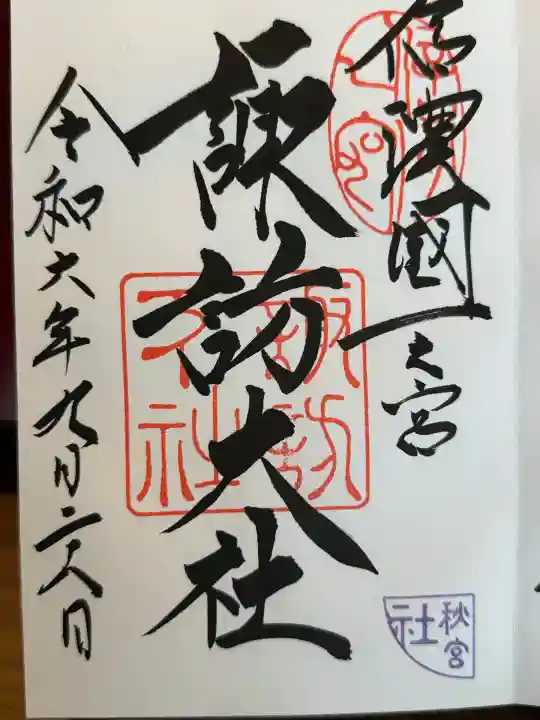 信濃國一之宮
諏訪大社
令和六年九月二八日
諏訪大社
秋宮
社